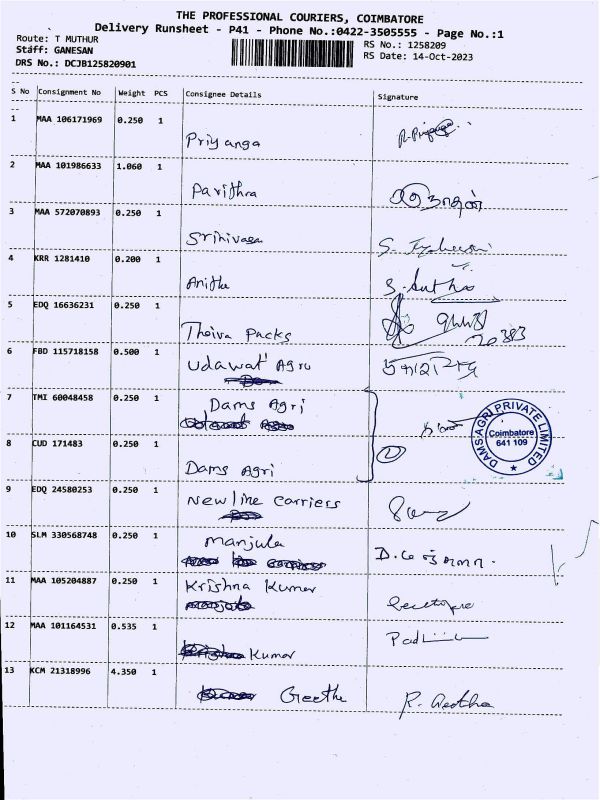 THE PROFESSIONAL COURIERS, COIMBATORE
Delivery Runsheet - P41 - Phone No.:0422-3505555 - Page No.:1
Route: T MUTHUR
RS No.: 1258209
Staff: GANESAN
RS Date: 14-Oct-2023
DRS No.: DCJB125820901
S No Consignment No Weight PCS Consignee Details Signature
1 MAA 106171969 0.250 1
Priyanga
2 MAA 101986633 1.060 1
Pavithra
3 MAA 572070893 0.250 1
Srinivasa
4 KRR 1281410 0.200 1
Anitha
5 EDQ 16636231 0.250 1
Theiva Packs
20383
6 FBD 115718158 0.500 1
Udawat Agro
7 TMI 60048458 0.250 1
Dams Agri
8 CUD 171483 0.250 1
Dams Agri
2
DAMS AGRI PRIVATE LIMITED
Coimbatore
641 109
9 EDQ 24580253 0.250 1
New line carriers
10 SLM 330568748 0.250 1
Manjula
11 MAA 105204887 0.250 1
Krishna Kumar
12 MAA 101164531 0.535 1
Kumar
13 KCM 21318996 4.350 1
Geetha
R. Geetha